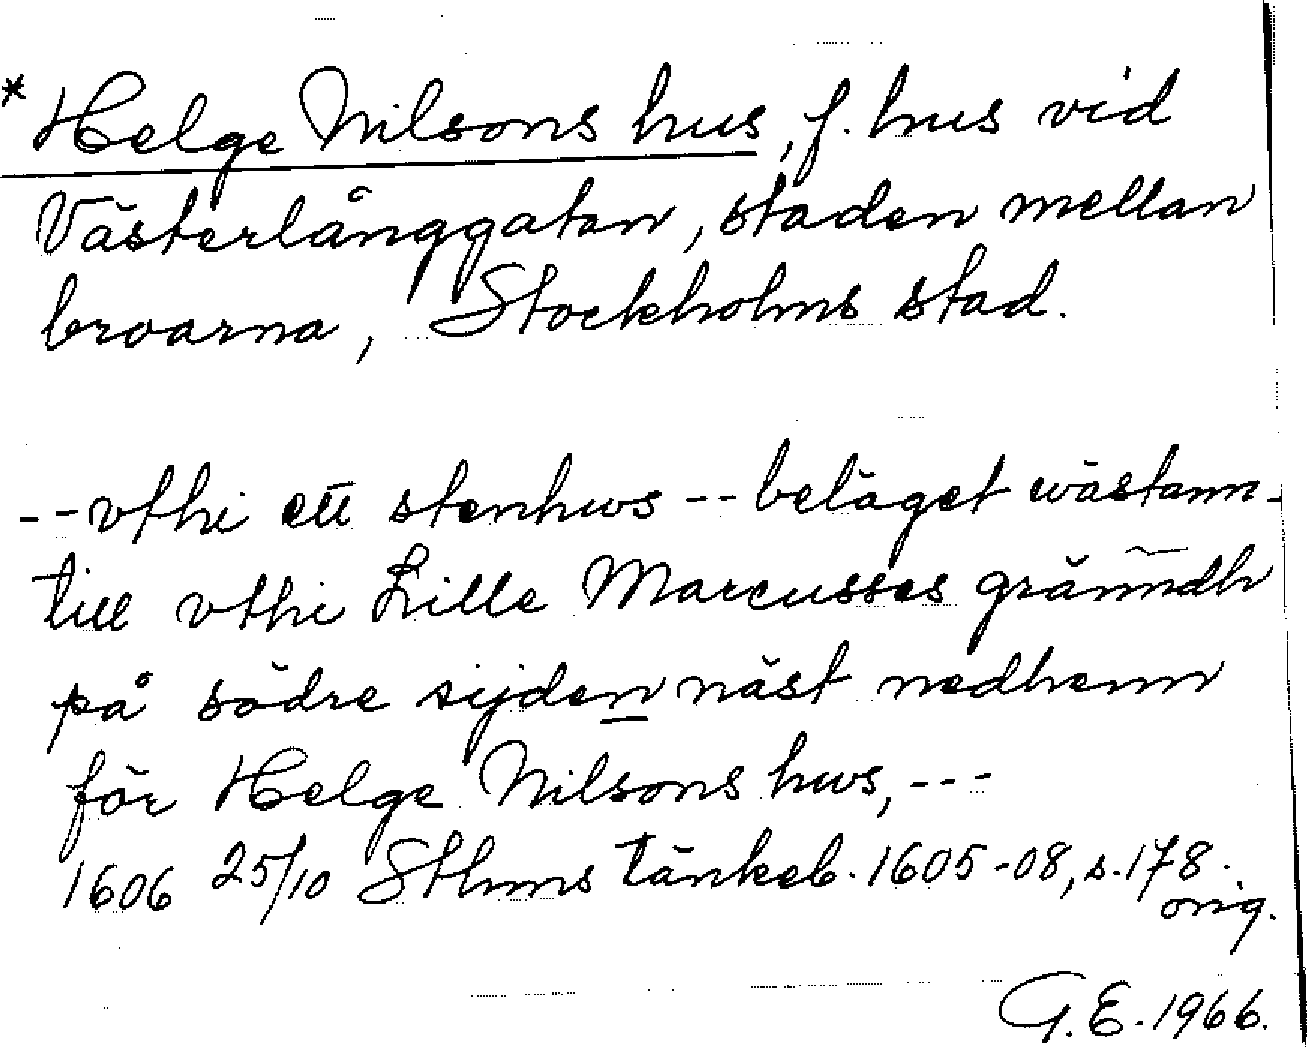 * Helge Nilsons hus, f. hus vid
Västerlånggatan, staden mellan
broarna, Stockholms stad.
--vthi ett stenhws -- beläget wästann-
till vthi Lille Marcusses gränndh
på södre sijden näst nedhenn
för Helge Nilsons hws, ---
1606 25/10 Sthms tänkeb. 1605-08, s. 178.
orig.
G.E. 1966.